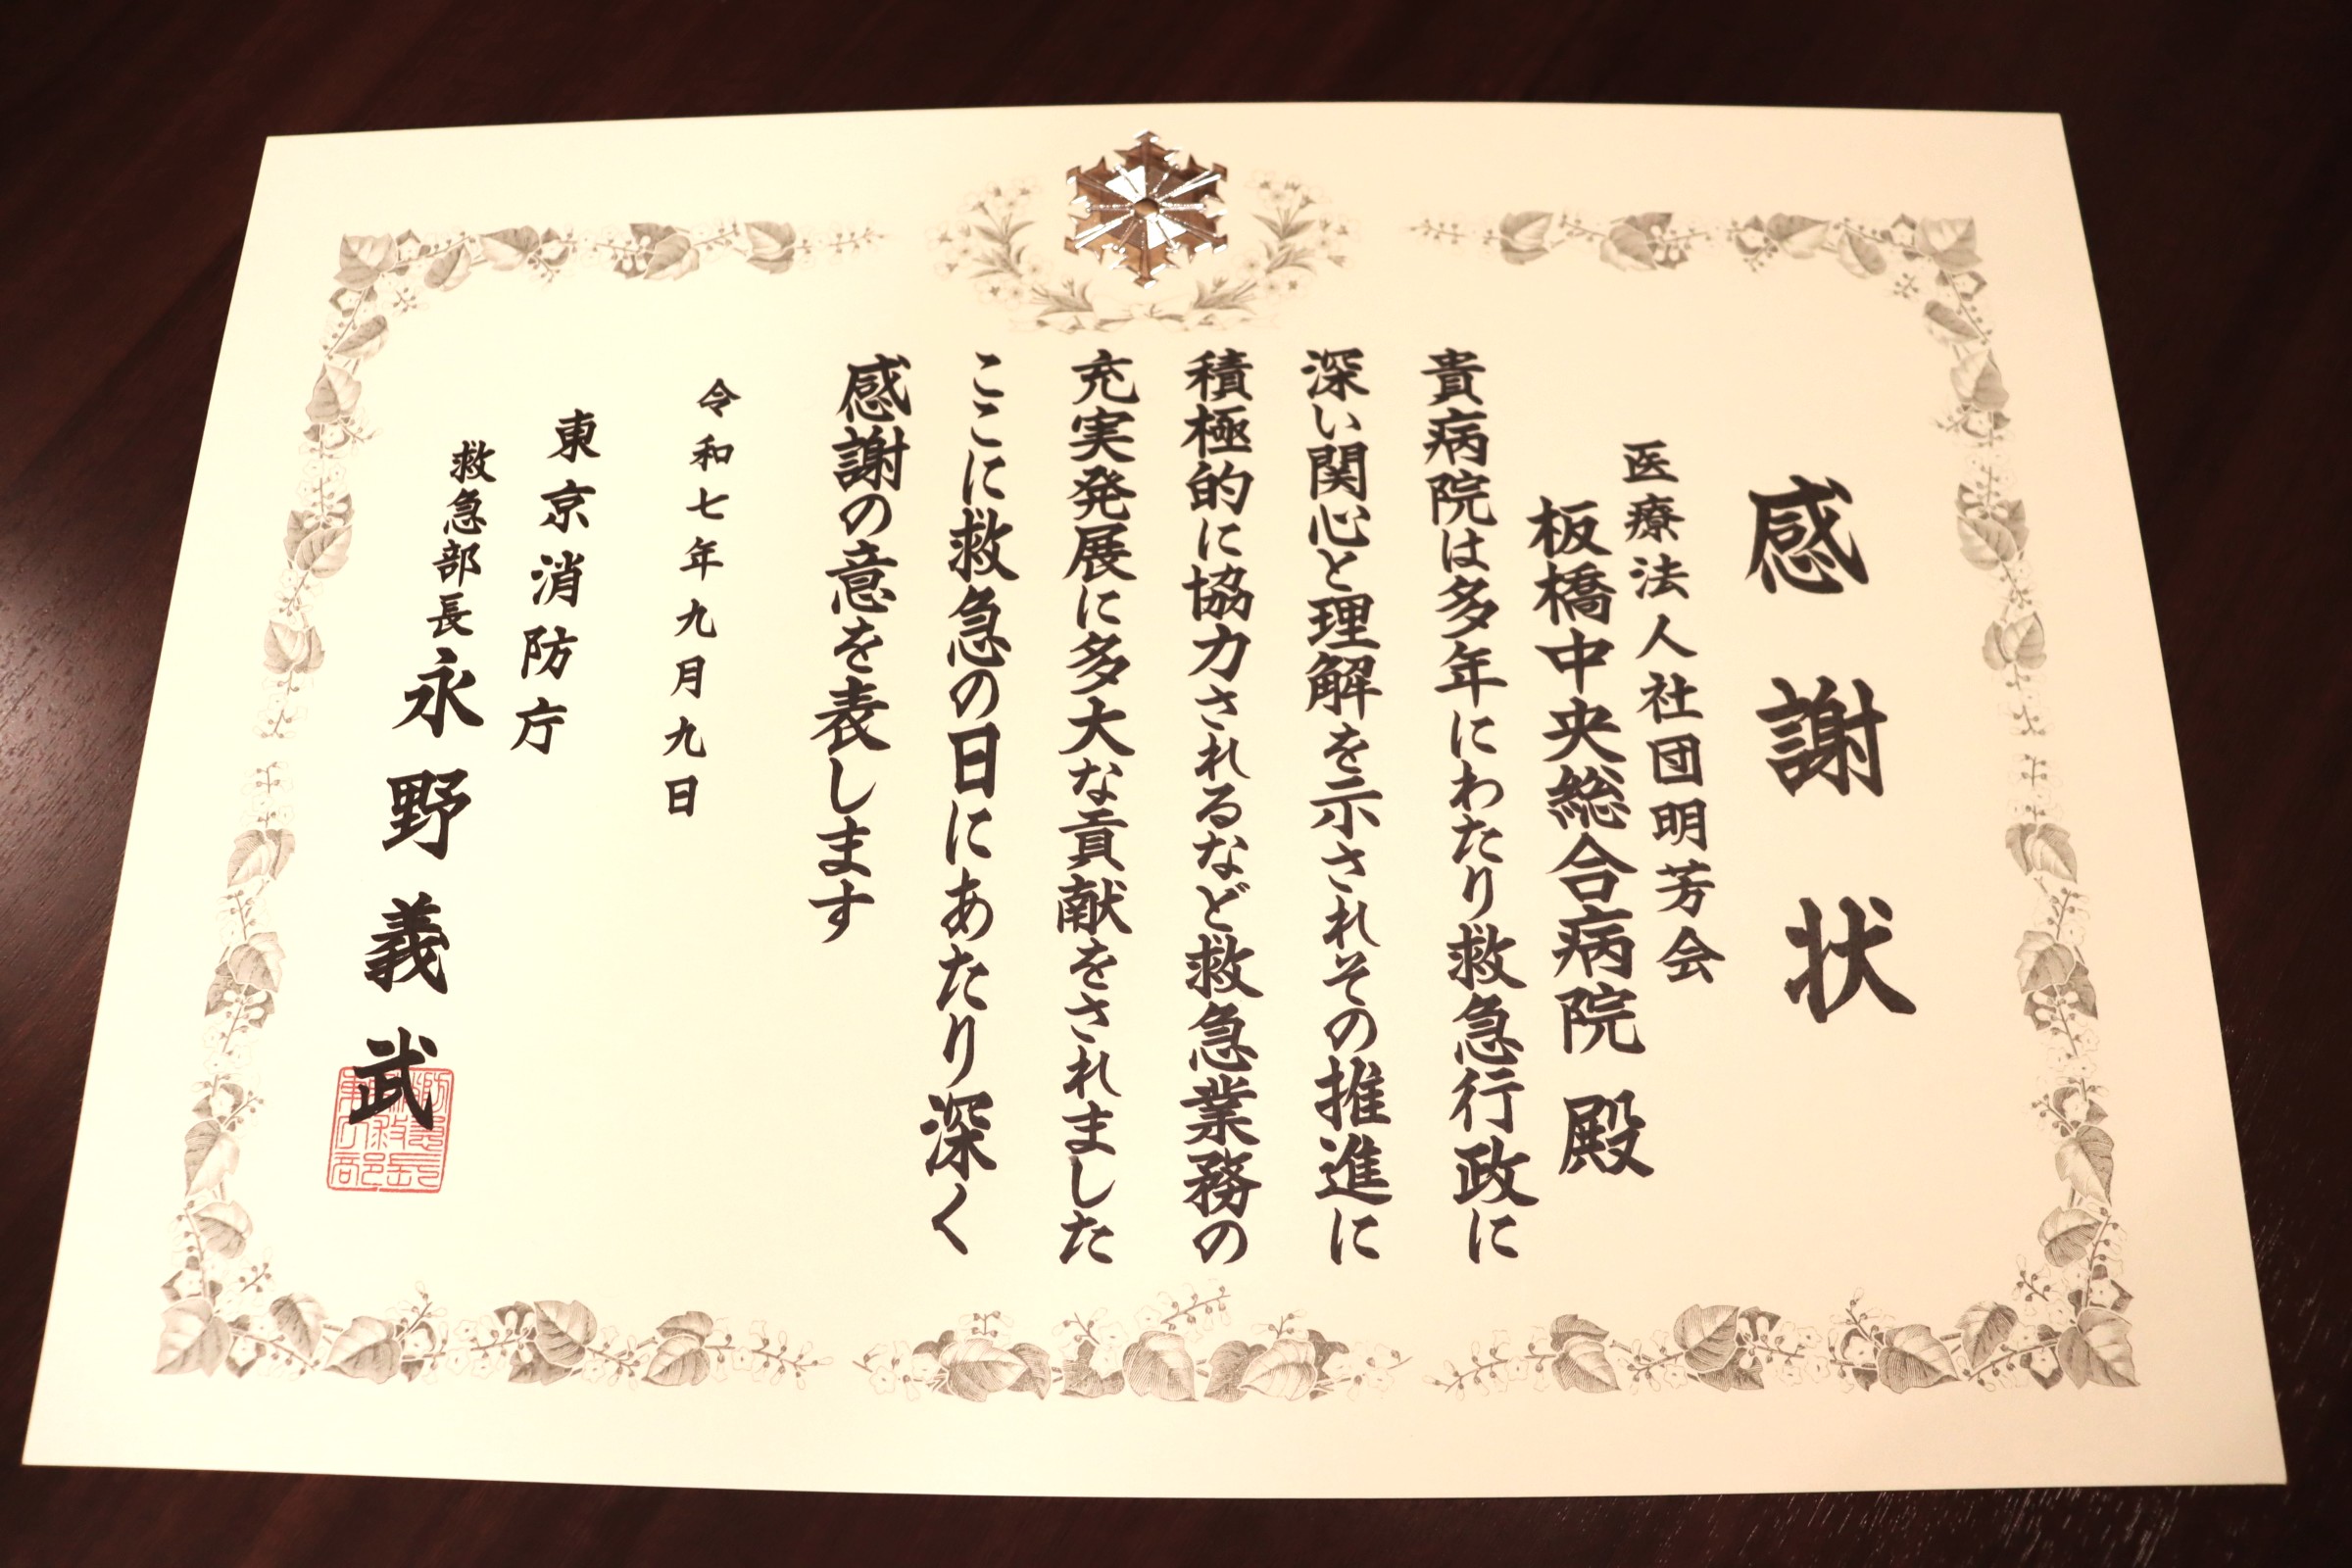 感謝状
医療法人社団明芳会
板橋中央総合病院 殿
貴病院は多年にわたり救急行政に
深い関心と理解を示されその推進に
積極的に協力されるなど救急業務の
充実発展に多大な貢献をされました
ここに救急の日にあたり深く
感謝の意を表します
令和七年九月九日
東京消防庁
救急部長 永野義武